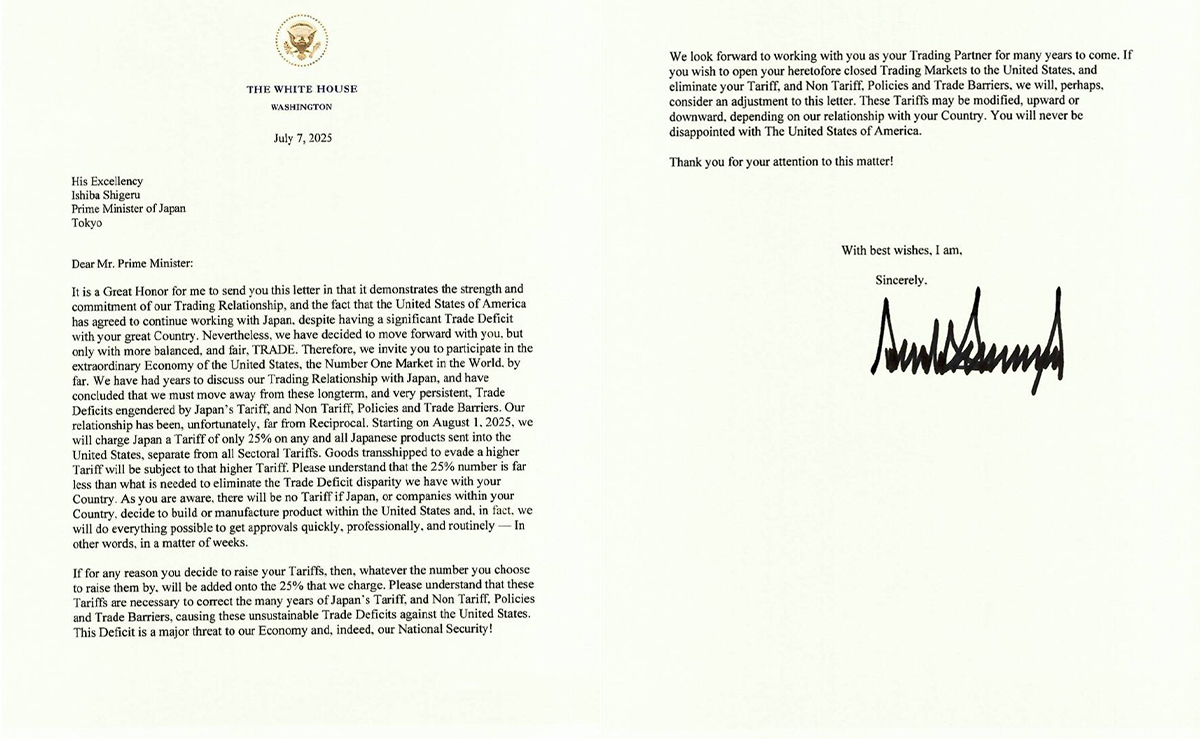 THE WHITE HOUSE
WASHINGTON
July 7, 2025
His Excellency
Ishiba Shigeru
Prime Minister of Japan
Tokyo
Dear Mr. Prime Minister:
It is a Great Honor for me to send you this letter in that it demonstrates the strength and
commitment of our Trading Relationship, and the fact that the United States of America
has agreed to continue working with Japan, despite having a significant Trade Deficit
with your great Country. Nevertheless, we have decided to move forward with you, but
only with more balanced, and fair, TRADE. Therefore, we invite you to participate in the
extraordinary Economy of the United States, the Number One Market in the World, by
far. We have had years to discuss our Trading Relationship with Japan, and have
concluded that we must move away from these longterm, and very persistent, Trade
Deficits engendered by Japan's Tariff, and Non Tariff, Policies and Trade Barriers. Our
relationship has been, unfortunately, far from Reciprocal. Starting on August 1, 2025, we
will charge Japan a Tariff of only 25% on any and all Japanese products sent into the
United States, separate from all Sectoral Tariffs. Goods transshipped to evade a higher
Tariff will be subject to that higher Tariff. Please understand that the 25% number is far
less than what is needed to eliminate the Trade Deficit disparity we have with your
Country. As you are aware, there will be no Tariff if Japan, or companies within your
Country, decide to build or manufacture product within the United States and, in fact, we
will do everything possible to get approvals quickly, professionally, and routinely — In
other words, in a matter of weeks.
If for any reason you decide to raise your Tariffs, then, whatever the number you choose
to raise them by, will be added onto the 25% that we charge. Please understand that these
Tariffs are necessary to correct the many years of Japan's Tariff, and Non Tariff, Policies
and Trade Barriers, causing these unsustainable Trade Deficits against the United States.
This Deficit is a major threat to our Economy and, indeed, our National Security!
We look forward to working with you as your Trading Partner for many years to come. If
you wish to open your heretofore closed Trading Markets to the United States, and
eliminate your Tariff, and Non Tariff, Policies and Trade Barriers, we will, perhaps,
consider an adjustment to this letter. These Tariffs may be modified, upward or
downward, depending on our relationship with your Country. You will never be
disappointed with The United States of America.
Thank you for your attention to this matter!
With best wishes, I am,
Sincerely,